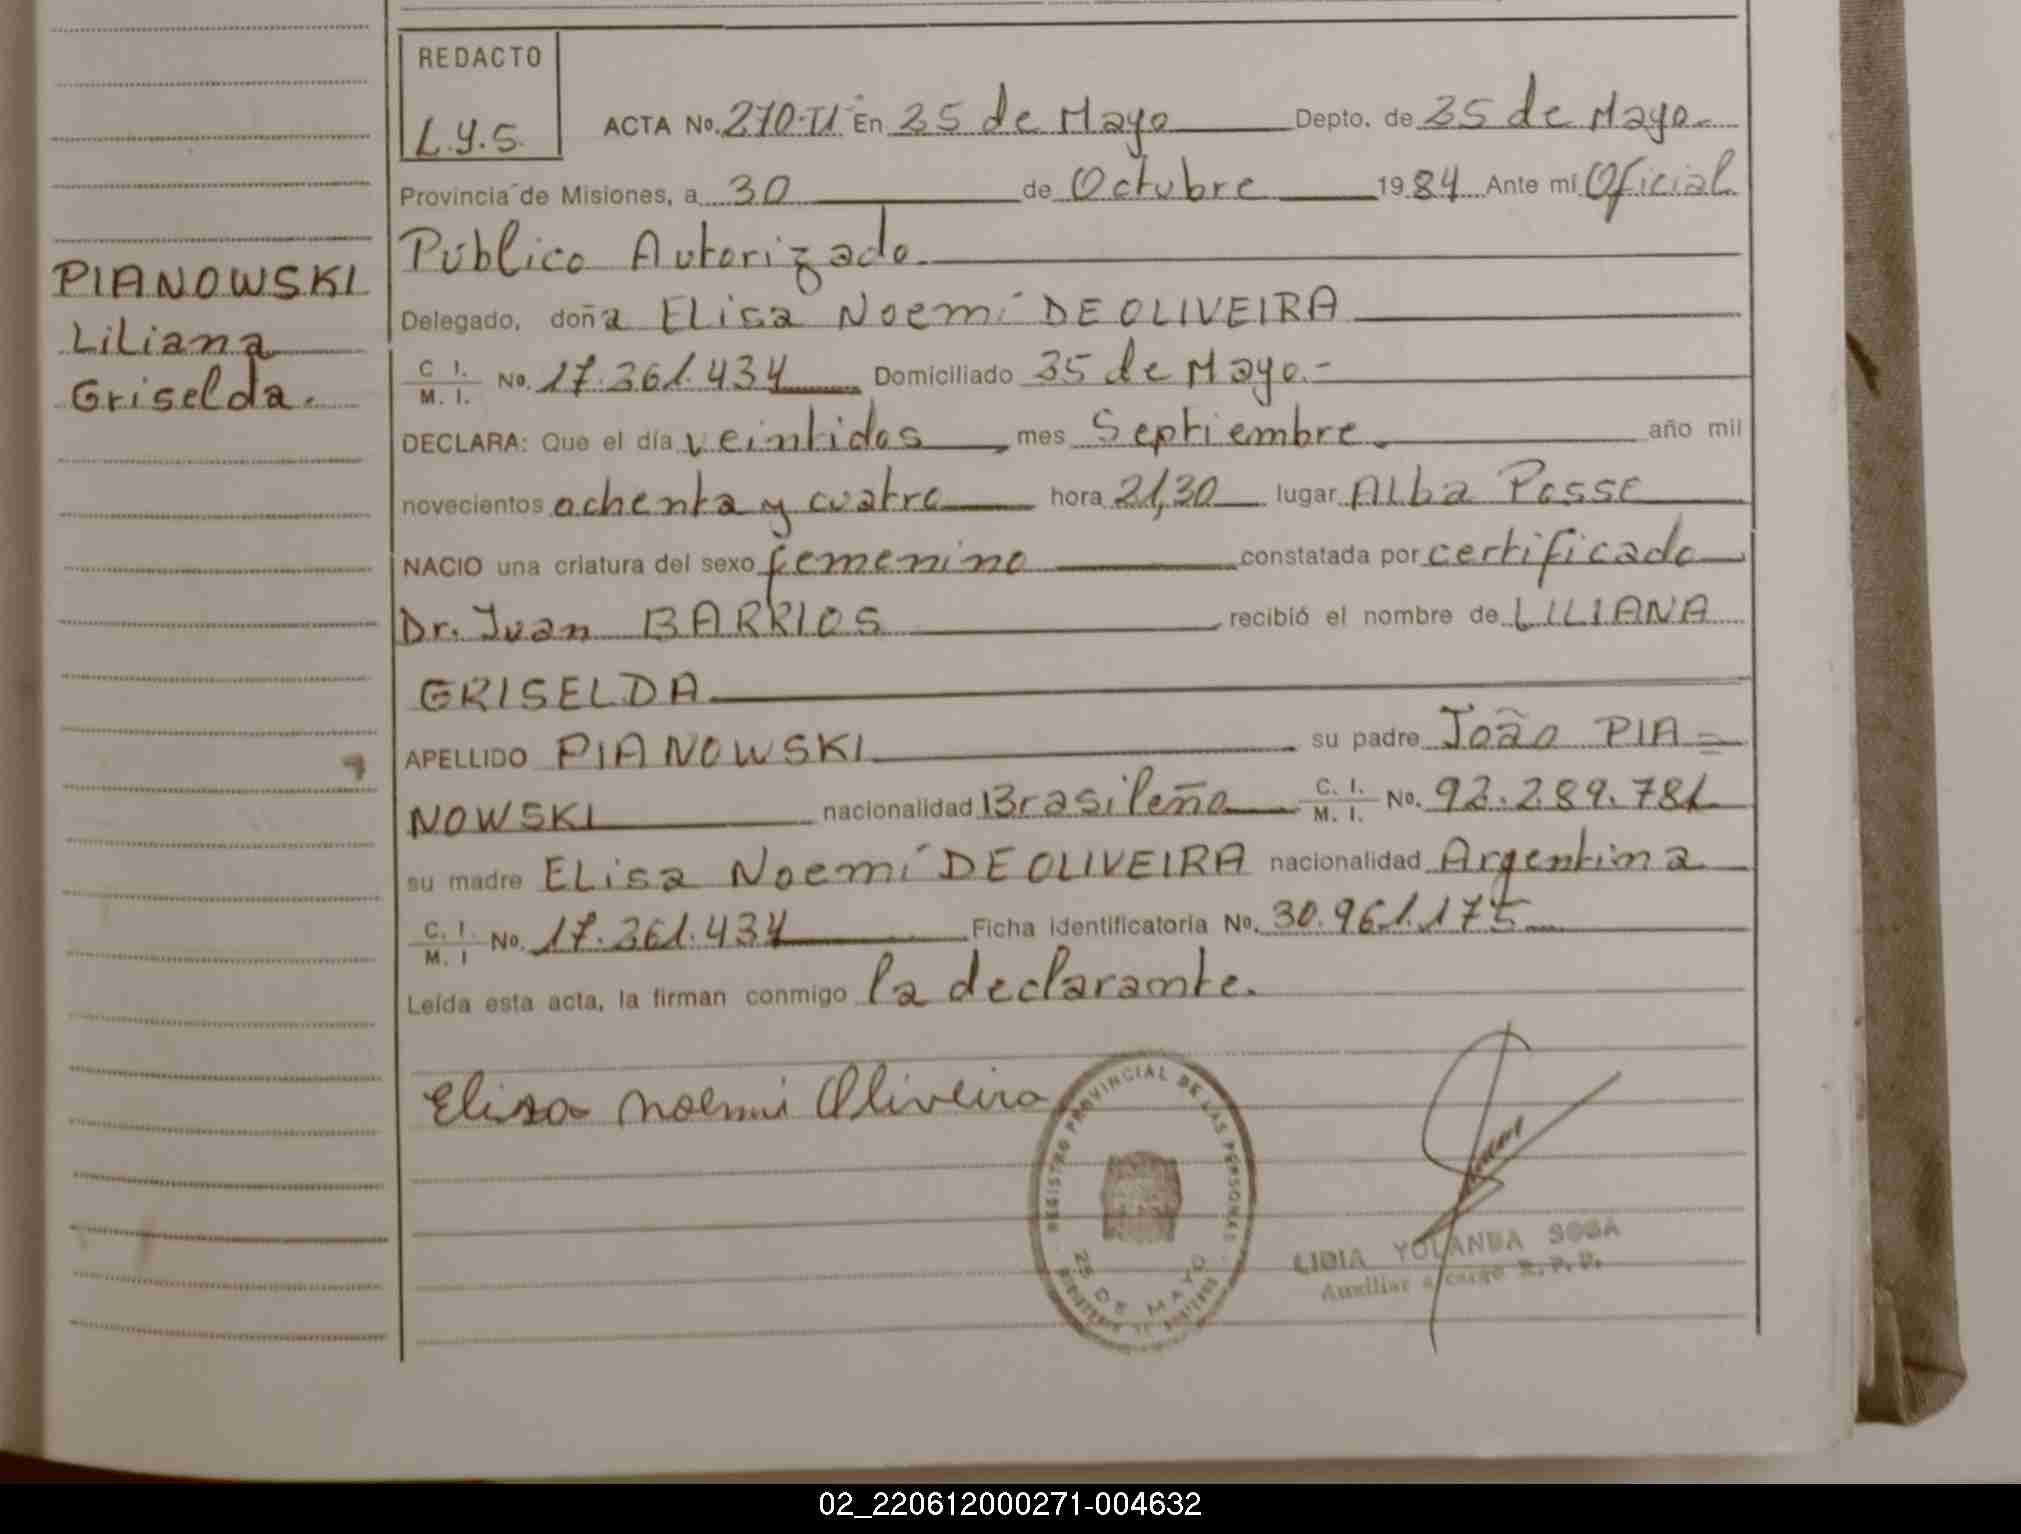 REDACTO
L.Y.S.
ACTA No. 270-TI En 25 de Mayo Depto. de 25 de Mayo.-
Provincia de Misiones, a 30 de Octubre 1984 Ante mí Oficial
Público Autorizado.
PIANOWSKI
Liliana
Griselda.
Delegado, doña Elisa Noemí DE OLIVEIRA
C. I.
M. I. No. 17.361.434 Domiciliado 25 de Mayo.-
DECLARA: Que el día veintidos, mes Septiembre. año mil
novecientos ochenta y cuatro hora 21,30 lugar Alba Posse
NACIO una criatura del sexo femenino constatada por certificado
Dr. Juan BARRIOS recibió el nombre de LILIANA
GRISELDA
APELLIDO PIANOWSKI su padre João PIA=
NOWSKI nacionalidad Brasileña C. I.
M. I. No. 92.289.781
su madre Elisa Noemí DE OLIVEIRA nacionalidad Argentina
C. I.
M. I No. 17.361.434 Ficha identificatoria No. 30.961.175
Leída esta acta, la firman conmigo la declarante.
Elisa Noemi Oliveira
REGISTRO PROVINCIAL DE LAS PERSONAS
25 DE MAYO
LIDIA YOLANDA SOSA
Auxiliar a cargo R.P.P.
02_220612000271-004632